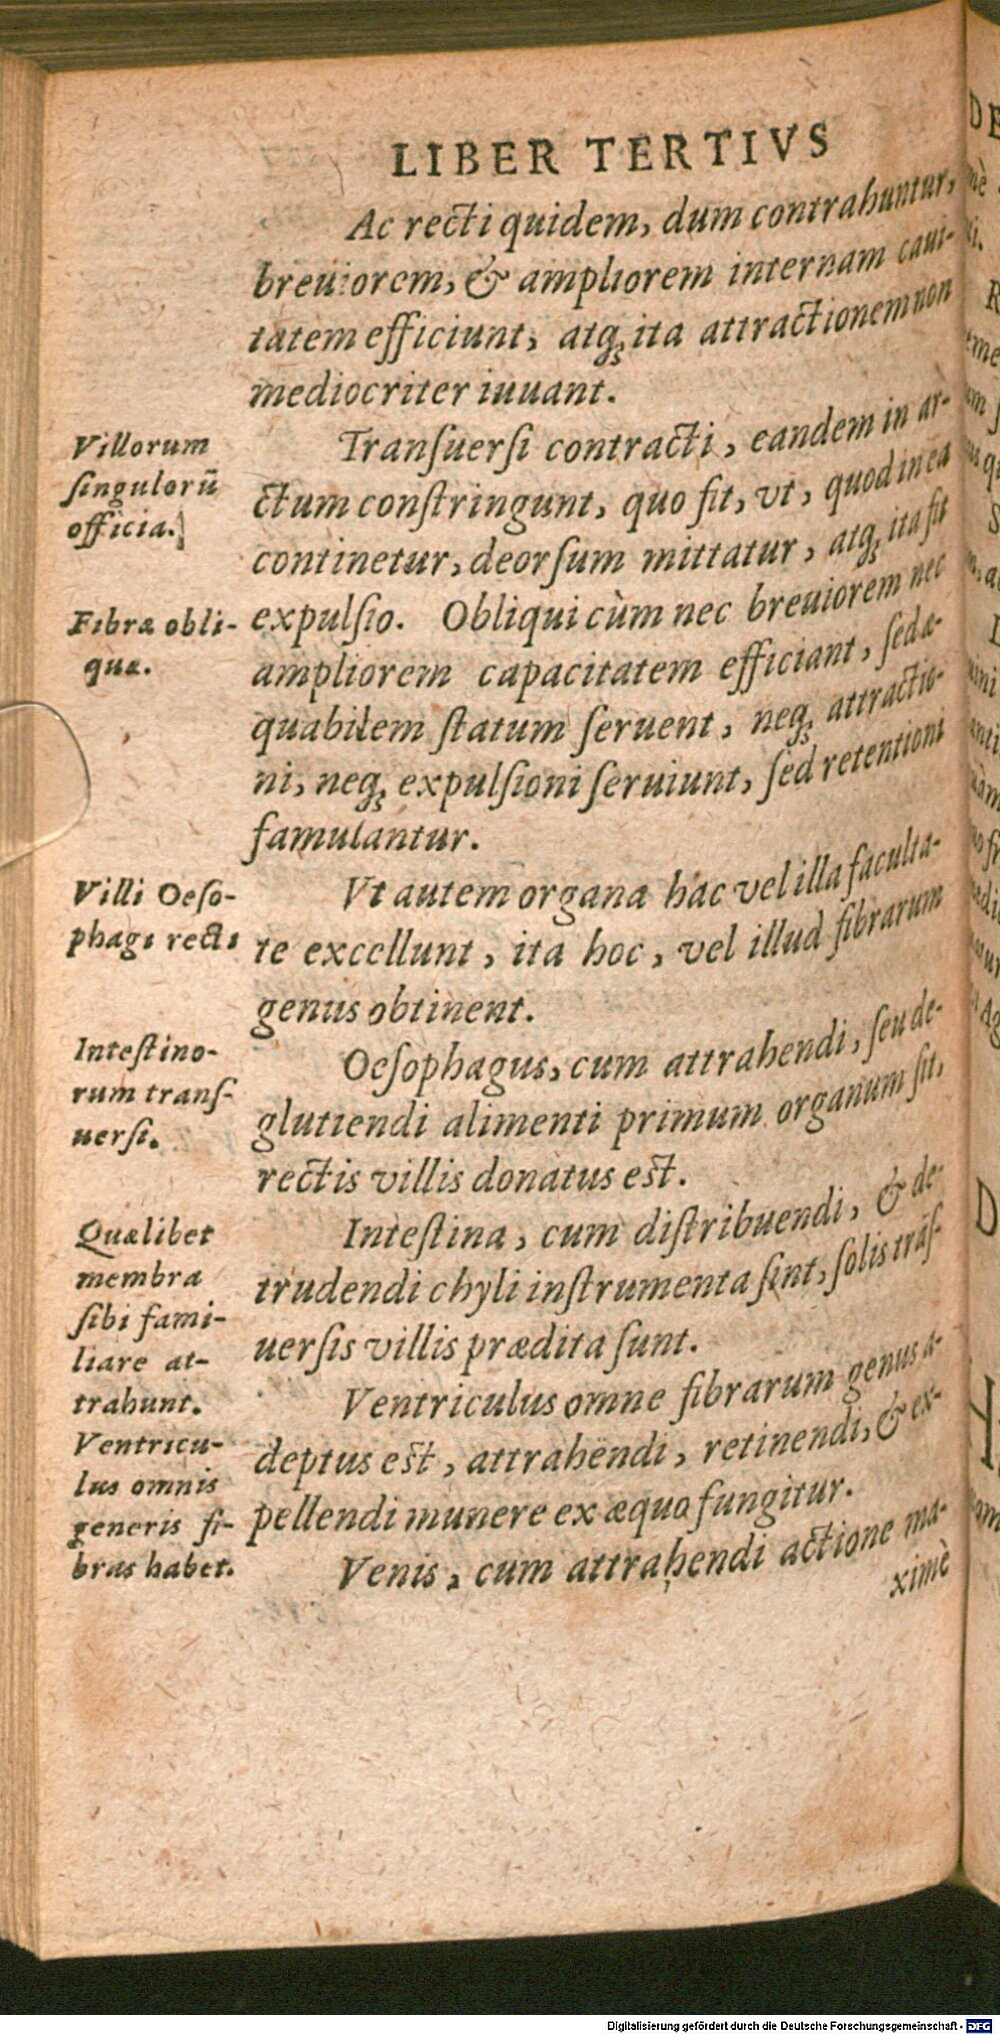 LIBER TERTIVS
Ac recti quidem, dum contrahuntur,
breuiorem, & ampliorem internam caui-
tatem efficiunt, atq; ita attractionem non
mediocriter iuuant.
Villorum
singulorū
officia.
Tranſuerſi contracti, eandem in ar-
ctum conſtringunt, quo fit, vt, quod in ea
continetur, deorſum mittatur, atq; ita fit
Fibræ obli-
quæ.
expulſio. Obliqui cùm nec breuiorem nec
ampliorem capacitatem efficiant, ſed æ-
quabilem ſtatum ſeruent, neq; attractio-
ni, neq; expulſioni ſeruiunt, ſed retentioni
famulantur.
Villi Oeſo-
phagi recti
Vt autem organa hac vel illa faculta-
te excellunt, ita hoc, vel illud fibrarum
genus obtinent.
Inteſtino-
rum tranſ-
uerſi.
Oeſophagus, cum attrahendi, ſeu de-
glutiendi alimenti primum organum ſit,
rectis villis donatus eſt.
Quælibet
membra
ſibi fami-
liare at-
trahunt.
Inteſtina, cum diſtribuendi, & de-
trudendi chyli inſtrumenta ſint, ſolis trāſ-
uerſis villis prædita ſunt.
Ventricu-
lus omnis
generis fi-
bras habet.
Ventriculus omne fibrarum genus a-
deptus eſt, attrahendi, retinendi, & ex-
pellendi munere ex æquo fungitur.
Venis, cum attrahendi actione ma-
ximè
Digitalisierung gefördert durch die Deutsche Forschungsgemeinschaft - DFG